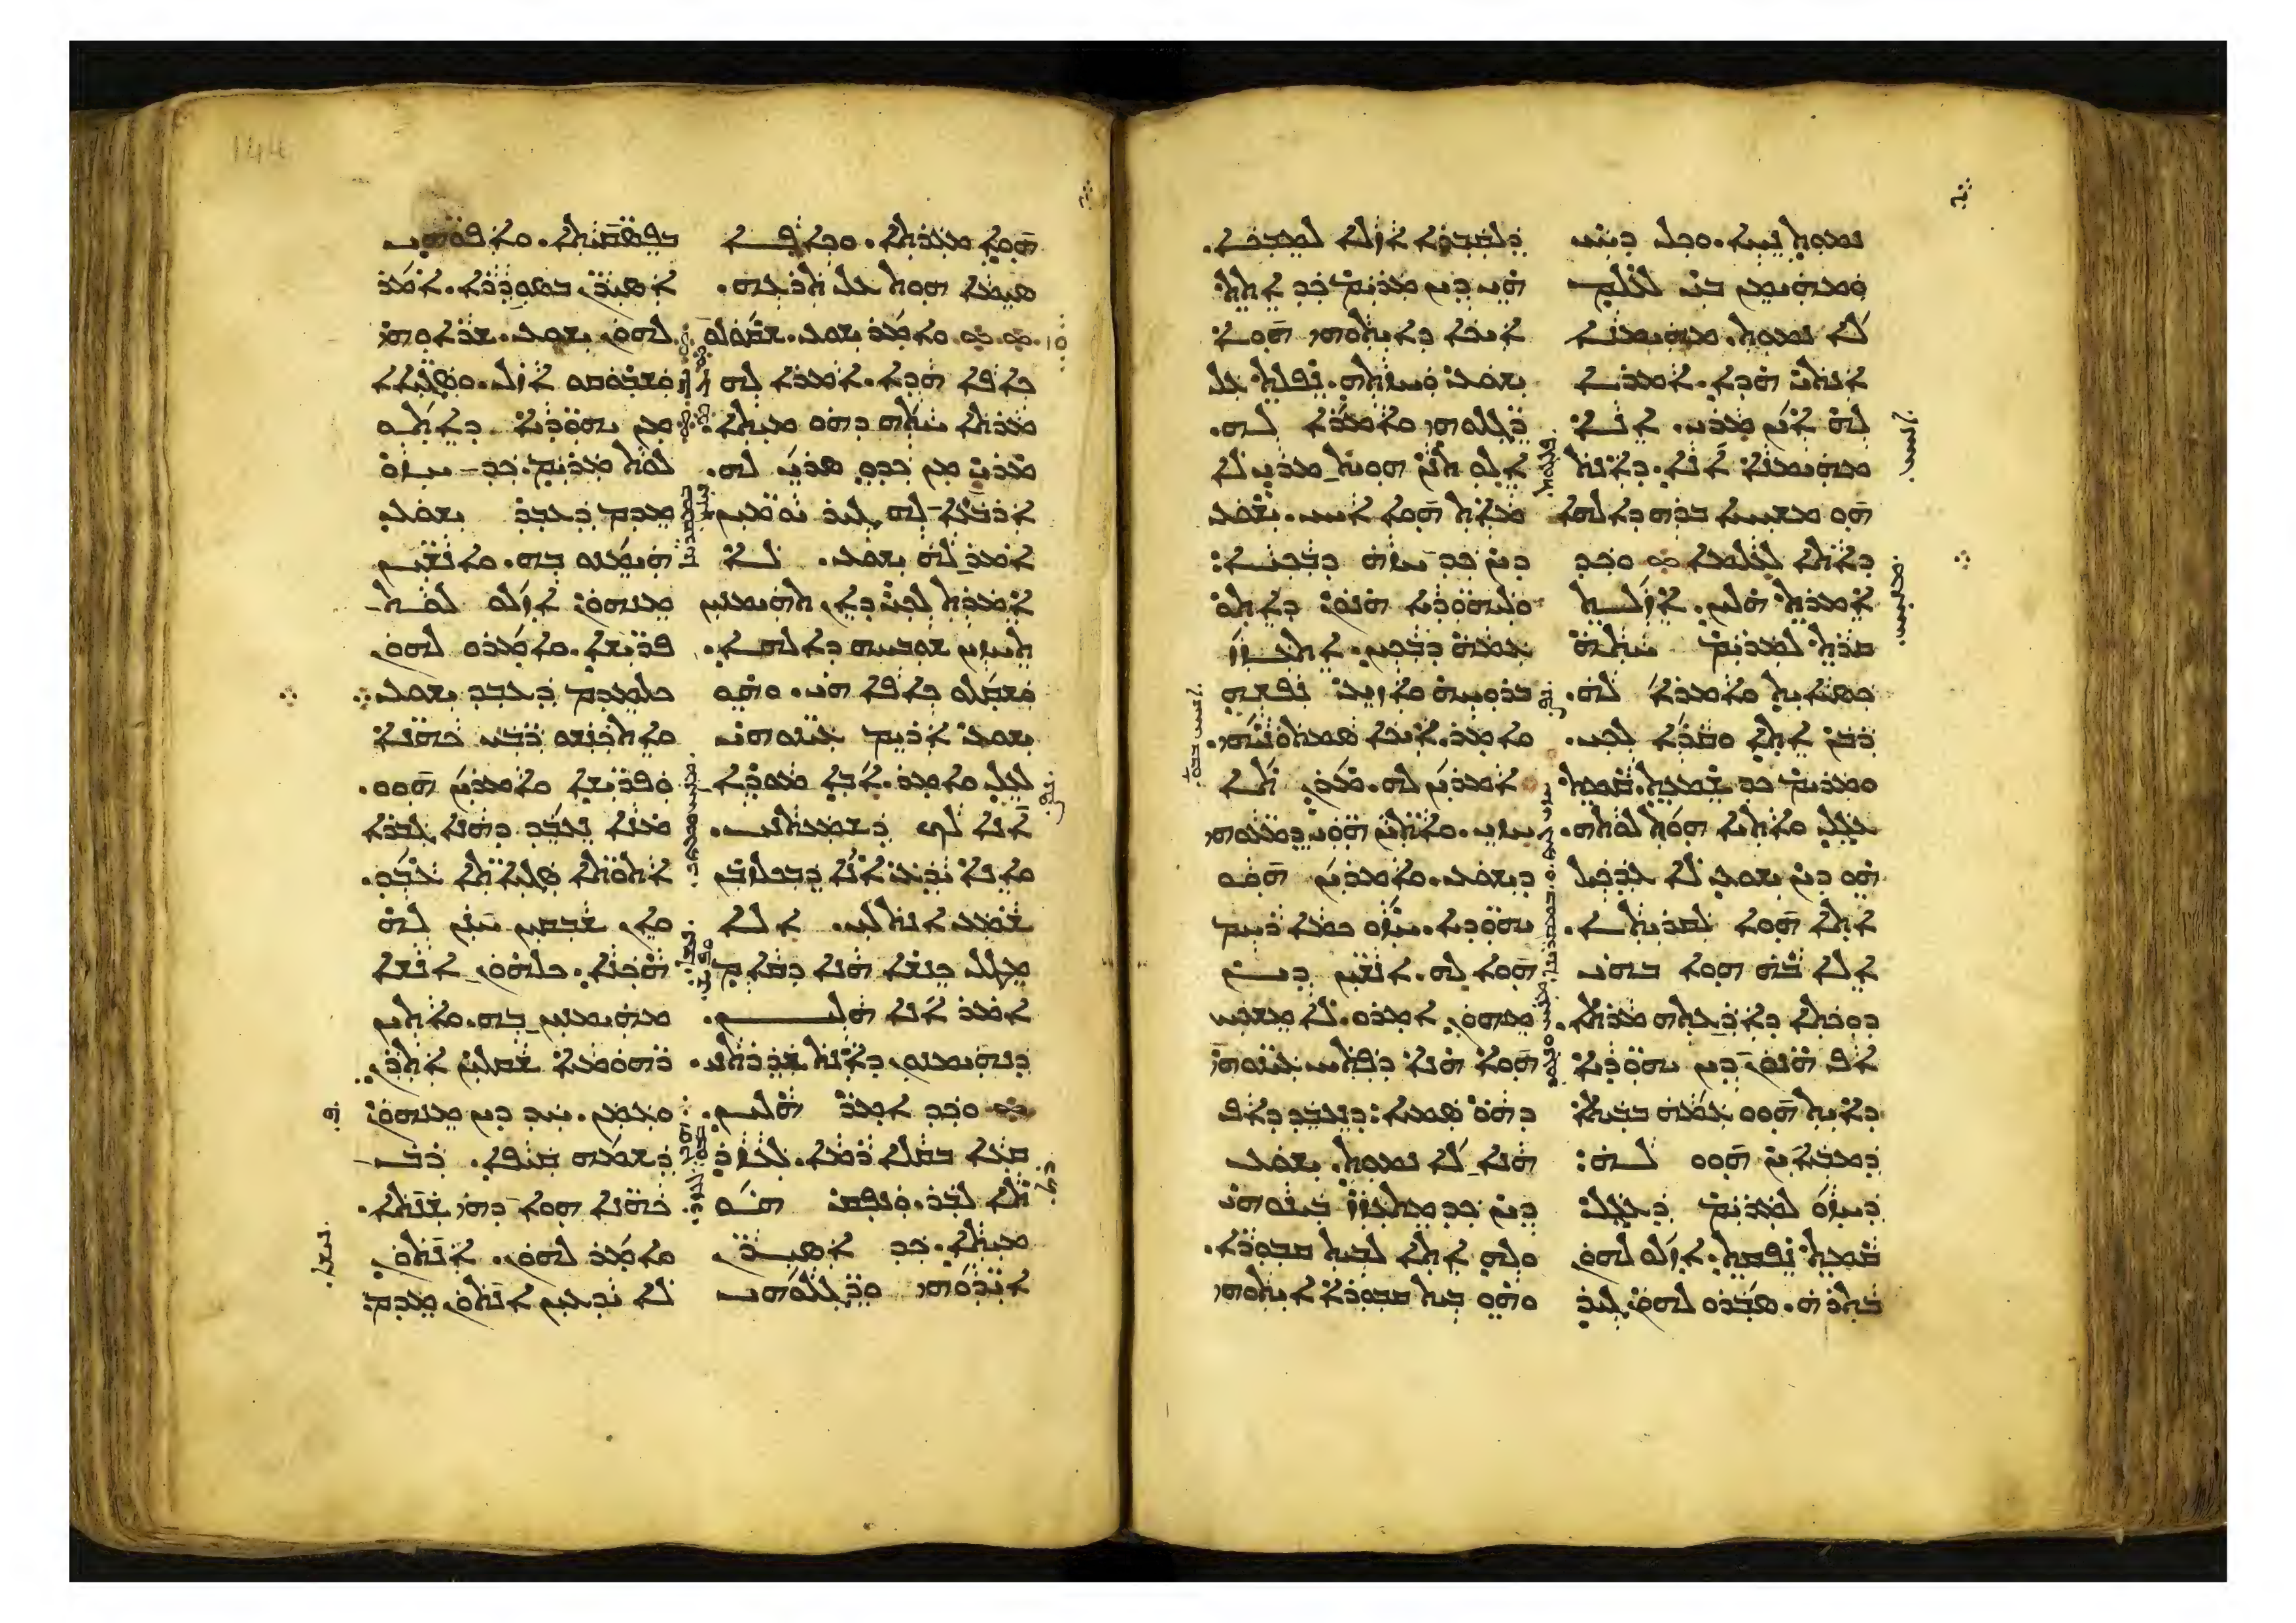 ܢܡܘܬ ܢܚܐ. ܘܟܠ ܕܚܝ
ܘܡܗܝܡܢ ܒܝ ܠܥܠܡ
ܠܐ ܢܡܘܬ. ܡܗܝܡܢܐ
ܐܢܬܝ ܗܕܐ. ܐܡܪܐ
ܠܗ ܐܝܢ ܡܪܝ. ܐܢܐ
ܡܗܝܡܢܐ ܐܢܐ. ܕܐܢܬ
ܗܘ ܡܫܝܚܐ ܒܪܗ ܕܐܠܗܐ
ܕܐܬܐ ܠܥܠܡܐ ܘܟܕ
ܐܡܪܬ ܗܠܝܢ. ܐܙܠܬ
ܩܪܬ ܠܡܪܝܡ ܚܬܗ
ܟܣܝܐܝܬ ܘܐܡܪܐ ܠܗ.
ܪܒܢ ܐܬܐ ܘܩܪܐ ܠܟܝ.
ܘܡܪܝܡ ܟܕ ܫܡܥܬ. ܩܡܬ
ܥܓܠ ܘܐܬܝܐ ܗܘܬ ܠܘܬܗ.
ܗܘ ܕܝܢ ܝܫܘܥ ܠܐ ܥܕܟܝܠ
ܐܬܐ ܗܘܐ ܠܩܪܝܬܐ.
ܐܠܐ ܒܗ ܗܘܐ ܒܗܝ
ܕܘܟܬܐ ܕܐܪܥܬܗ ܡܪܬܐ.
ܐܦ ܗܢܘܢ ܕܝܢ ܝܗܘܕܝܐ
ܕܐܝܬ ܗܘܘ ܥܡܗ ܒܒܝܬܐ
ܕܡܒܝܐܝܢ ܗܘܘ ܠܗ:
ܕܚܙܘ ܠܡܪܝܡ ܕܥܓܠ
ܩܡܬ ܢܦܩܬ. ܐܙܠܘ ܠܗܘܢ
ܒܬܪܗ. ܣܒܪܘ ܠܗܘܢ ܓܝܪ
ܕܠܩܒܪܐ ܐܙܠܐ ܠܡܒܟܐ.
ܗܝ ܕܝܢ ܡܪܝܡ ܟܕ ܐܬܬ
ܐܝܟܐ ܕܐܝܬܘܗܝ ܗܘܐ
ܝܫܘܥ ܘܚܙܬܗ. ܢܦܠܬ ܥܠ
ܪܓܠܘܗܝ ܘܐܡܪܐ ܠܗ.
ܐܠܘ ܬܢܢ ܗܘܝܬ ܡܪܝ ܠܐ
ܡܐܬ ܗܘܐ ܐܚܝ. ܝܫܘܥ
ܕܝܢ ܟܕ ܚܙܗ ܕܒܟܝܐ:
ܘܠܝܗܘܕܝܐ ܗܢܘܢ ܕܐܬܘ
ܥܡܗ ܕܒܟܝܢ. ܐܬܥܙܙ
ܒܪܘܚܗ ܘܐܙܝܥ ܢܦܫܗ
ܘܐܡܪ. ܐܝܟܐ ܣܡܬܘܢܝܗܝ.
ܐܡܪܝܢ ܠܗ. ܡܪܢ ܬܐ
ܚܙܝ. ܘܐܬܝܢ ܗܘܝ ܕܡܥܘܗܝ
ܕܝܫܘܥ. ܘܐܡܪܝܢ ܗܘܘ
ܝܗܘܕܝܐ. ܚܙܘ ܟܡܐ ܪܚܡ
ܗܘܐ ܠܗ. ܐܢܫܝܢ ܕܝܢ
ܡܢܗܘܢ ܐܡܪܘ. ܠܐ ܡܫܟܚ
ܗܘܐ ܗܢܐ ܕܦܬܚ ܥܝܢܘܗܝ
ܕܗܘ ܣܡܝܐ: ܕܢܥܒܕ ܕܐܦ
ܗܢܐ ܠܐ ܢܡܘܬ. ܝܫܘܥ
ܕܝܢ ܟܕ ܡܬܥܙܙ ܒܝܢܘܗܝ
ܘܠܗ ܐܬܐ ܠܒܝܬ ܩܒܘܪܐ.
ܘܗܘ ܒܝܬ ܩܒܘܪܐ ܐܝܬܘܗܝ
ܗܘܐ ܡܥܪܬܐ. ܘܟܐܦܐ
ܣܝܡܐ ܗܘܬ ܥܠ ܬܪܥܗ.
ܘܐܡܪ ܝܫܘܥ. ܫܩܘܠܘ
ܟܐܦܐ ܗܕܐ. ܐܡܪܐ ܠܗ
ܡܪܬܐ ܚܬܗ ܕܗܘ ܡܝܬܐ.
ܡܪܝ ܡܢ ܟܕܘ ܣܪܝ ܠܗ.
ܐܪܒܥܐ ܠܗ ܓܝܪ ܝܘܡܝܢ
ܐܡܪ ܠܗ ܝܫܘܥ. ܠܐ
ܐܡܪܬ ܠܟܝ ܕܐܢ ܬܗܝܡܢܝܢ
ܬܚܙܝܢ ܫܘܒܚܗ ܕܐܠܗܐ.
ܘܫܩܠܘ ܟܐܦܐ ܗܝ. ܘܗܘ
ܝܫܘܥ ܐܪܝܡ ܥܝܢܘܗܝ
ܠܥܠ ܘܐܡܪ. ܐܒܐ ܡܘܕܐ
ܐܢܐ ܠܟ ܕܫܡܥܬܢܝ.
ܘܐܢܐ ܝܕܥ ܐܢܐ ܕܒܟܠܙܒܢ
ܫܡܥ ܐܢܬ ܠܝ. ܐܠܐ
ܡܛܠ ܟܢܫܐ ܗܢܐ ܕܩܐܡ
ܐܡܪ ܐܢܐ ܗܠܝܢ.
ܕܢܗܝܡܢܘܢ ܕܐܢܬ ܫܕܪܬܢܝ.
ܘܟܕ ܐܡܪ ܗܠܝܢ.
ܩܥܐ ܒܩܠܐ ܪܡܐ. ܠܥܙܪ
ܬܐ ܠܒܪ. ܘܢܦܩ ܗܘ
ܡܝܬܐ. ܟܕ ܐܣܝܪܢ
ܐܝܕܘܗܝ ܘܪܓܠܘܗܝ
ܒܦܣܩܝܬܐ. ܘܐܦܘܗܝ
ܐܣܝܪܢ ܒܣܘܕܪܐ. ܐܡܪ
ܠܗܘܢ ܝܫܘܥ. ܫܪܐܘܗܝ
ܘܫܒܘܩܘ ܐܙܠ. ܘܣܓܝܐܐ
ܡܢ ܝܗܘܕܝܐ ܕܐܬܘ
ܠܘܬ ܡܪܝܡ. ܟܕ ܚܙܘ
ܡܕܡ ܕܥܒܕ ܝܫܘܥ
ܗܝܡܢܘ ܒܗ. ܘܐܢܫܝܢ
ܡܢܗܘܢ ܐܙܠܘ ܠܘܬ
ܦܪܝܫܐ. ܘܐܡܪܘ ܠܗܘܢ
ܟܠܡܕܡ ܕܥܒܕ ܝܫܘܥ
ܘܐܬܟܢܫܘ ܪܒܝ ܟܗܢܐ
ܘܦܪܝܫܐ ܘܐܡܪܝܢ ܗܘܘ.
ܡܢܐ ܢܥܒܕ ܕܗܢܐ ܓܒܪܐ
ܐܬܘܬܐ ܣܓܝܐܬܐ ܥܒܕ.
ܘܐܢ ܫܒܩܝܢ ܚܢܢ ܠܗ
ܗܟܢܐ. ܟܠܗܘܢ ܐܢܫܐ
ܡܗܝܡܢܝܢ ܒܗ. ܘܐܬܝܢ
ܪܗܘܡܝܐ ܫܩܠܝܢ ܐܬܪܢ
ܘܥܡܢ. ܚܕ ܕܝܢ ܡܢܗܘܢ
ܕܫܡܗ ܩܝܦܐ. ܪܒ
ܟܗܢܐ ܗܘܐ ܕܗܝ ܫܢܬܐ.
ܘܐܡܪ ܠܗܘܢ. ܐܢܬܘܢ
ܠܐ ܝܕܥܝܢ ܐܢܬܘܢ ܡܕܡ
144